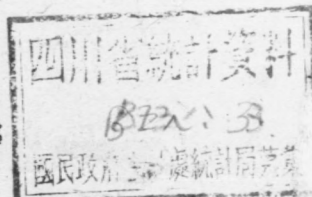 四川省統計資料
33
國民政府主計處統計局蒐集